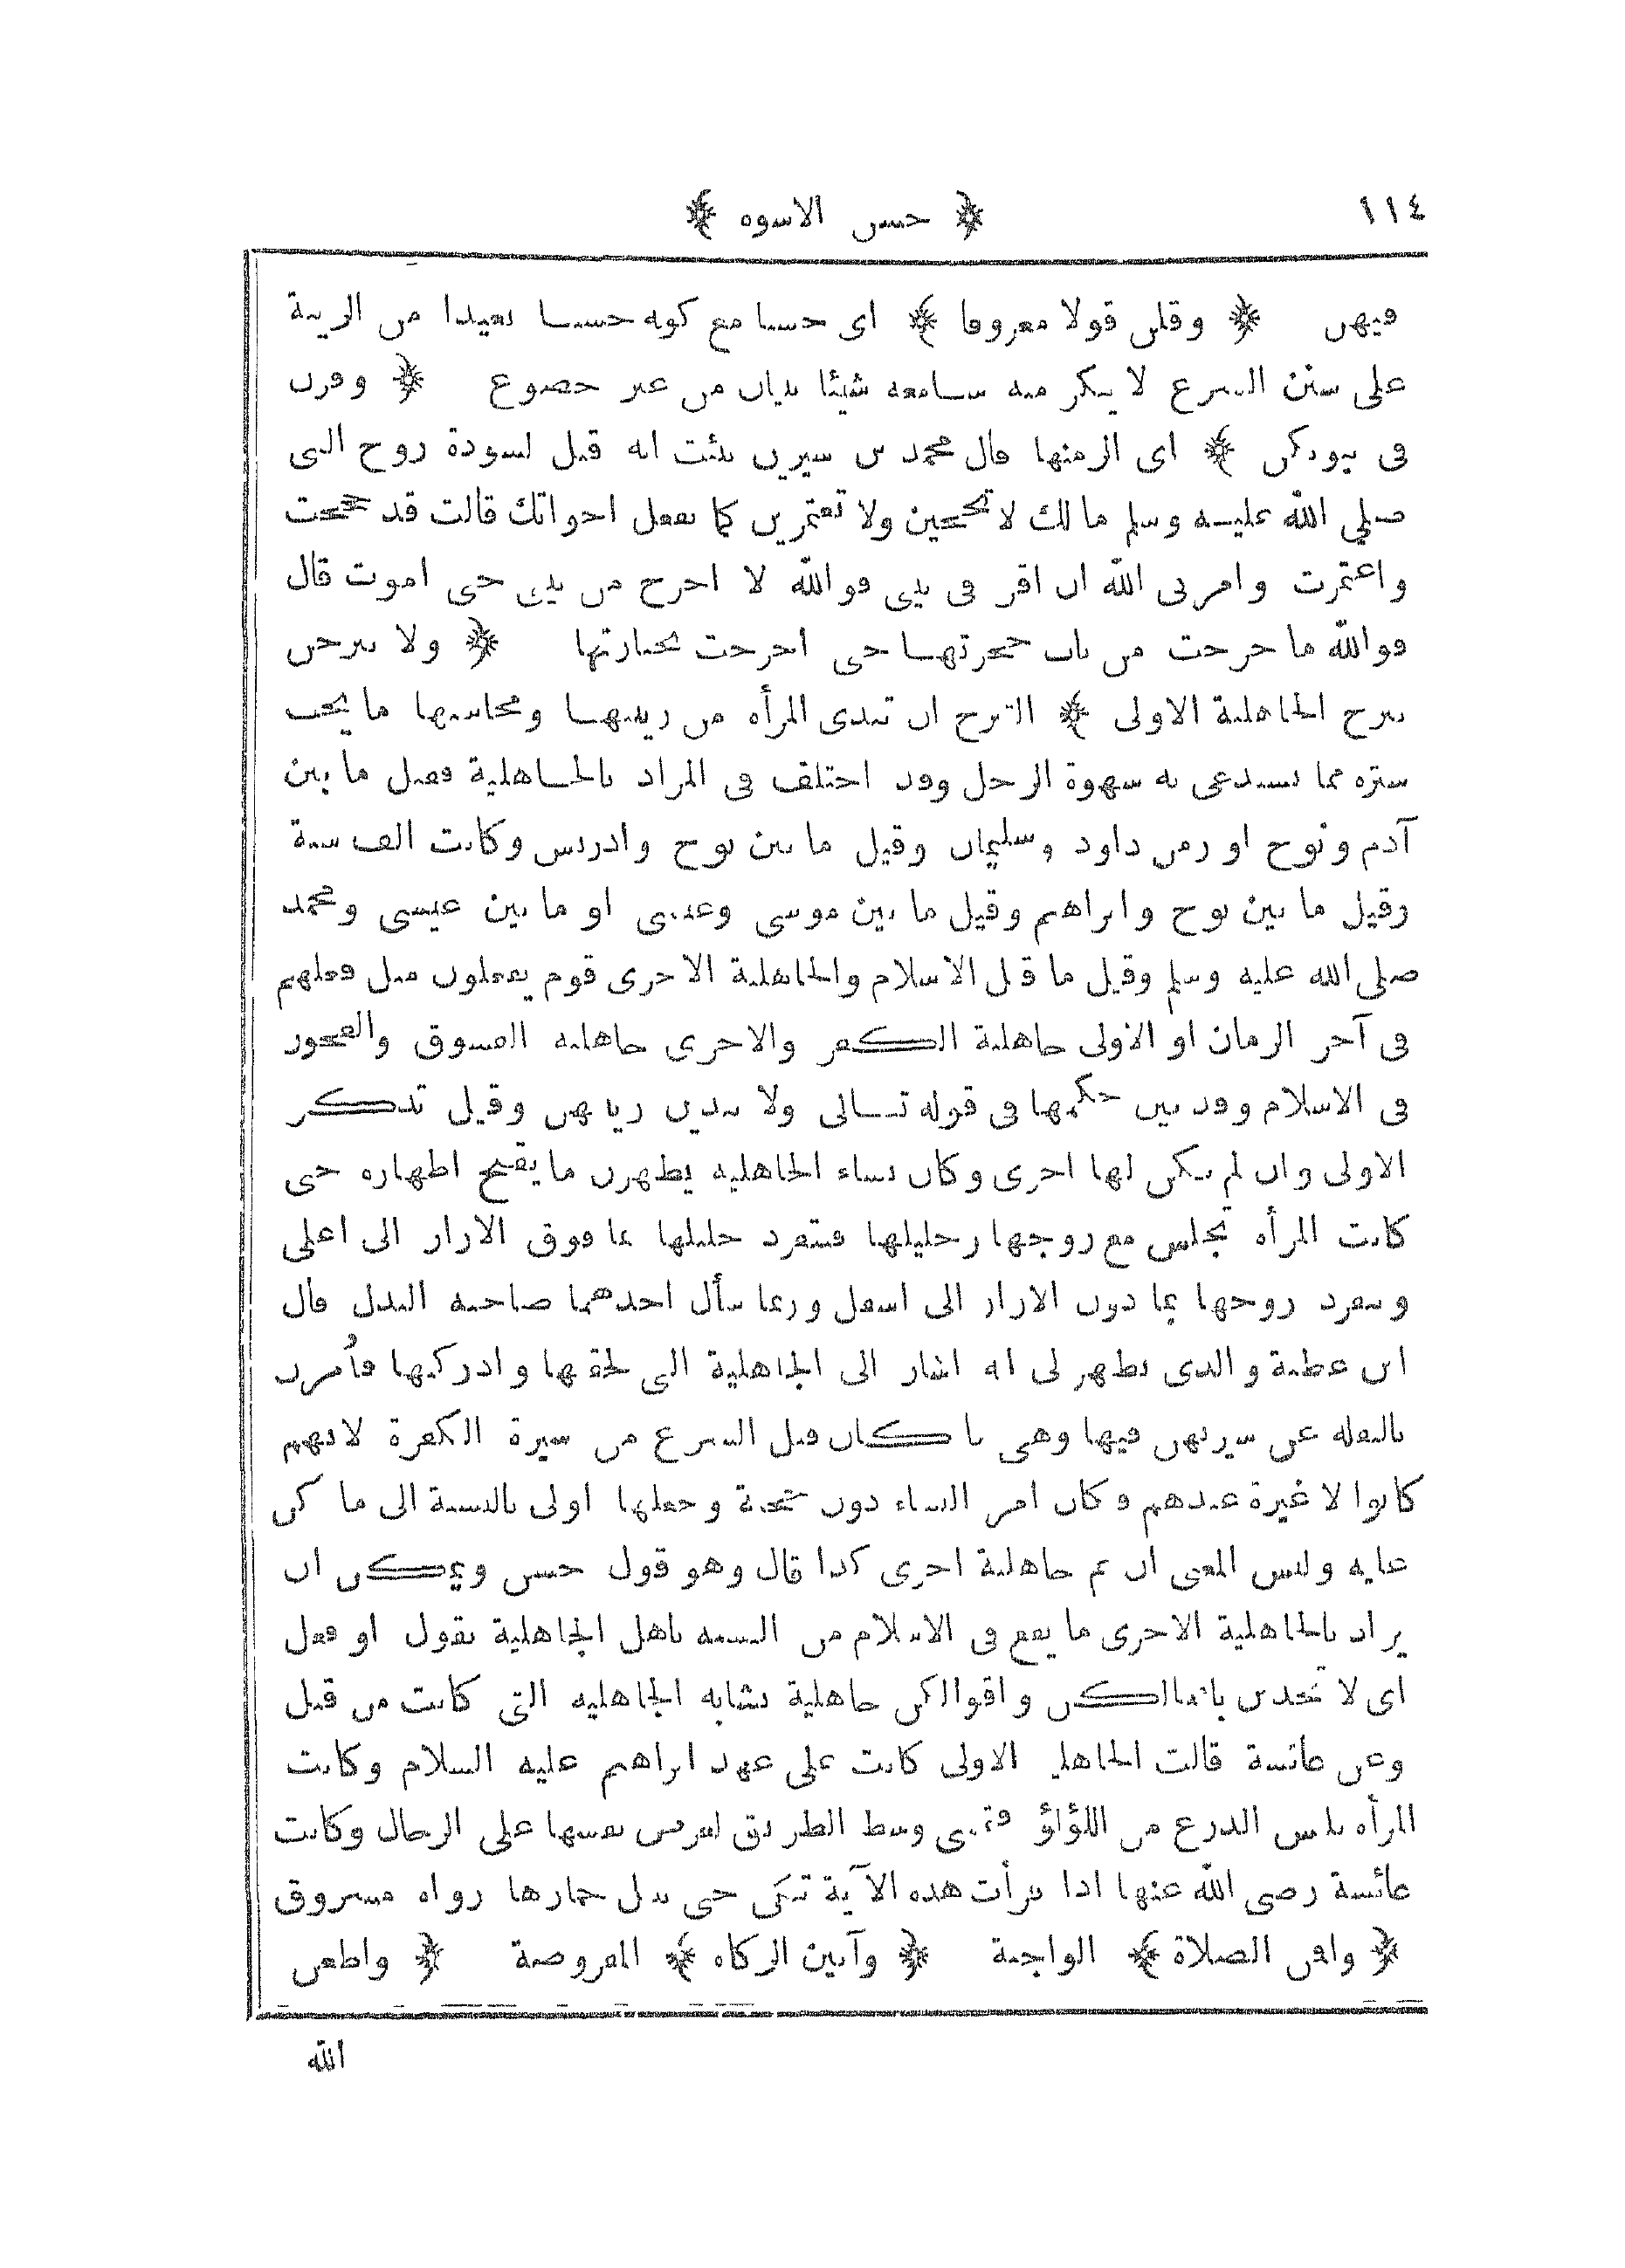 ١١٤ ﴿ حسن الاسوه ﴾
فيهن ﴿ وقلن قولا معروفا ﴾ اى حسنا مع كونه حسنا بعيدا من الريبة
على سنن الشرع لا ينكر منه سامعه شيئا بيان من غير خضوع ﴿ وقرن
فى بيوتكن ﴾ اى الزمنها قال محمد بن سيرين نبئت انه قيل لسودة زوج النبى
صلى الله عليه وسلم مالك لا تحججين ولا تعتمرين كما يفعل اخواتك قالت قد حججت
واعتمرت وامرنى الله ان اقر فى بيتى فوالله لا اخرج من بيتى حتى اموت قال
فوالله ما خرجت من باب حجرتها حتى اخرجت بجنازتها ﴿ ولا تبرجن
تبرج الجاهلية الاولى ﴾ التبرج ان تبدى المرأه من زينتها ومحاسنها ما يجب
ستره مما تستدعى به شهوة الرجل وقد اختلف فى المراد بالجاهلية فقيل ما بين
آدم ونوح او زمن داود وسليمان وقيل ما بين نوح وادريس وكانت الف سنة
وقيل ما بين نوح وابراهيم وقيل ما بين موسى وعيسى او ما بين عيسى ومحمد
صلى الله عليه وسلم وقيل ما قبل الاسلام والجاهلية الاخرى قوم يفعلون مثل فعلهم
فى آخر الزمان او الاولى جاهلية الكفر والاخرى جاهليه الفسوق والفجور
فى الاسلام وقد بين حكمها فى قوله تعالى ولا يبدين زينتهن وقيل تذكر
الاولى وان لم يكن لها اخرى وكان نساء الجاهليه يظهرن ما يقبح اظهاره حتى
كانت المرأه تجلس مع زوجها وخليلها فيتفرد خليلها بما فوق الازار الى اعلى
وينفرد زوجها بما دون الازار الى اسفل وربما سأل احدهما صاحبه البدل قال
ابن عطية والذى يظهر لى انه اشار الى الجاهلية التى لحقنها وادركنها فأمرن
بالنقله عن سيرتهن فيها وهى ما كان قبل الشرع من سيرة الكفرة لانهم
كانوا لا غيرة عندهم وكان امر النساء دون حجبة وجعلها اولى بالنسبة الى ما كن
عليه وليس المعنى ان ثم جاهلية اخرى كذا قال وهو قول حسن ويمكن ان
يراد بالجاهلية الاخرى ما يقع فى الاسلام من التشبه باهل الجاهلية بقول او فعل
اى لا تحدثن بافعالكن واقوالكن جاهلية تشابه الجاهليه التى كانت من قبل
وعن عائشة قالت الجاهلية الاولى كانت على عهد ابراهيم عليه السلام وكانت
المرأه تلبس الدرع من اللؤلؤ فتمشى وسط الطريق تعرض نفسها على الرجال وكانت
عائشة رضى الله عنها اذا قرأت هذه الآية تبكى حتى يبل خمارها رواه مسروق
﴿ واقمن الصلاة ﴾ الواجبة ﴿ وآتين الزكاه ﴾ المفروضة ﴿ واطعن
الله